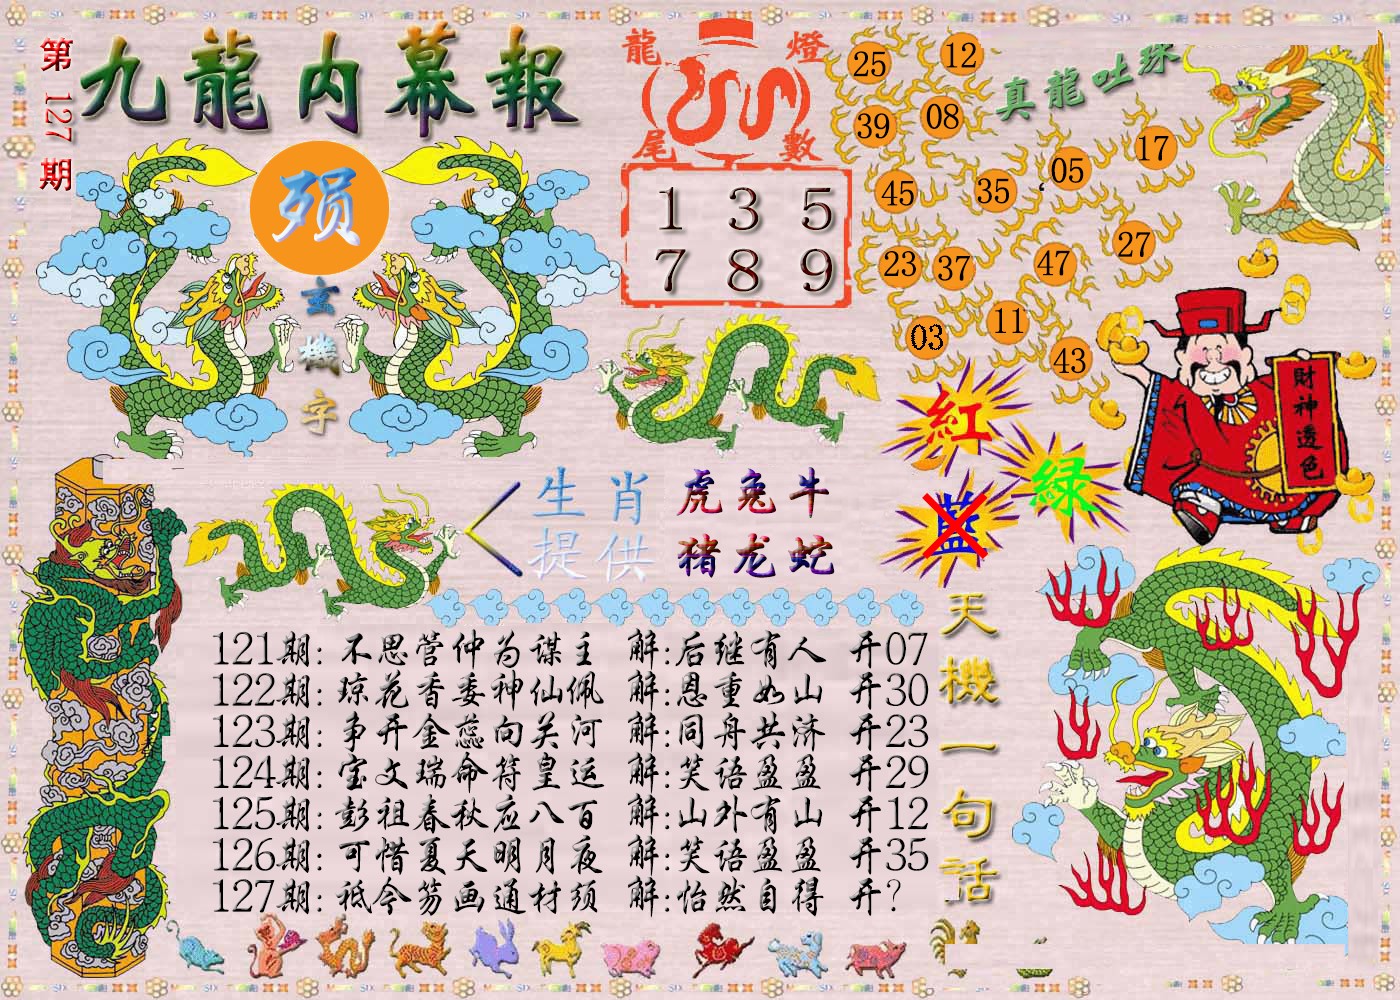 第127期
九龍内幕報
殒
玄機字
龍燈
尾數
1 3 5
7 8 9
真龍吐珠
25 12
39 08
45 35 05 17
23 37 47 27
03 11 43
財神透色
紅
绿
藍
生肖 虎兔牛
提供 猪龙蛇
天機一句話
121期: 不思管仲为谋主 解:后继有人 开07
122期: 琼花香委神仙佩 解:恩重如山 开30
123期: 争开金蕊向关河 解:同舟共济 开23
124期: 宝文瑞命符皇运 解:笑语盈盈 开29
125期: 彭祖春秋应八百 解:山外有山 开12
126期: 可惜夏天明月夜 解:笑语盈盈 开35
127期: 祗今笏画通材颂 解:怡然自得 开?